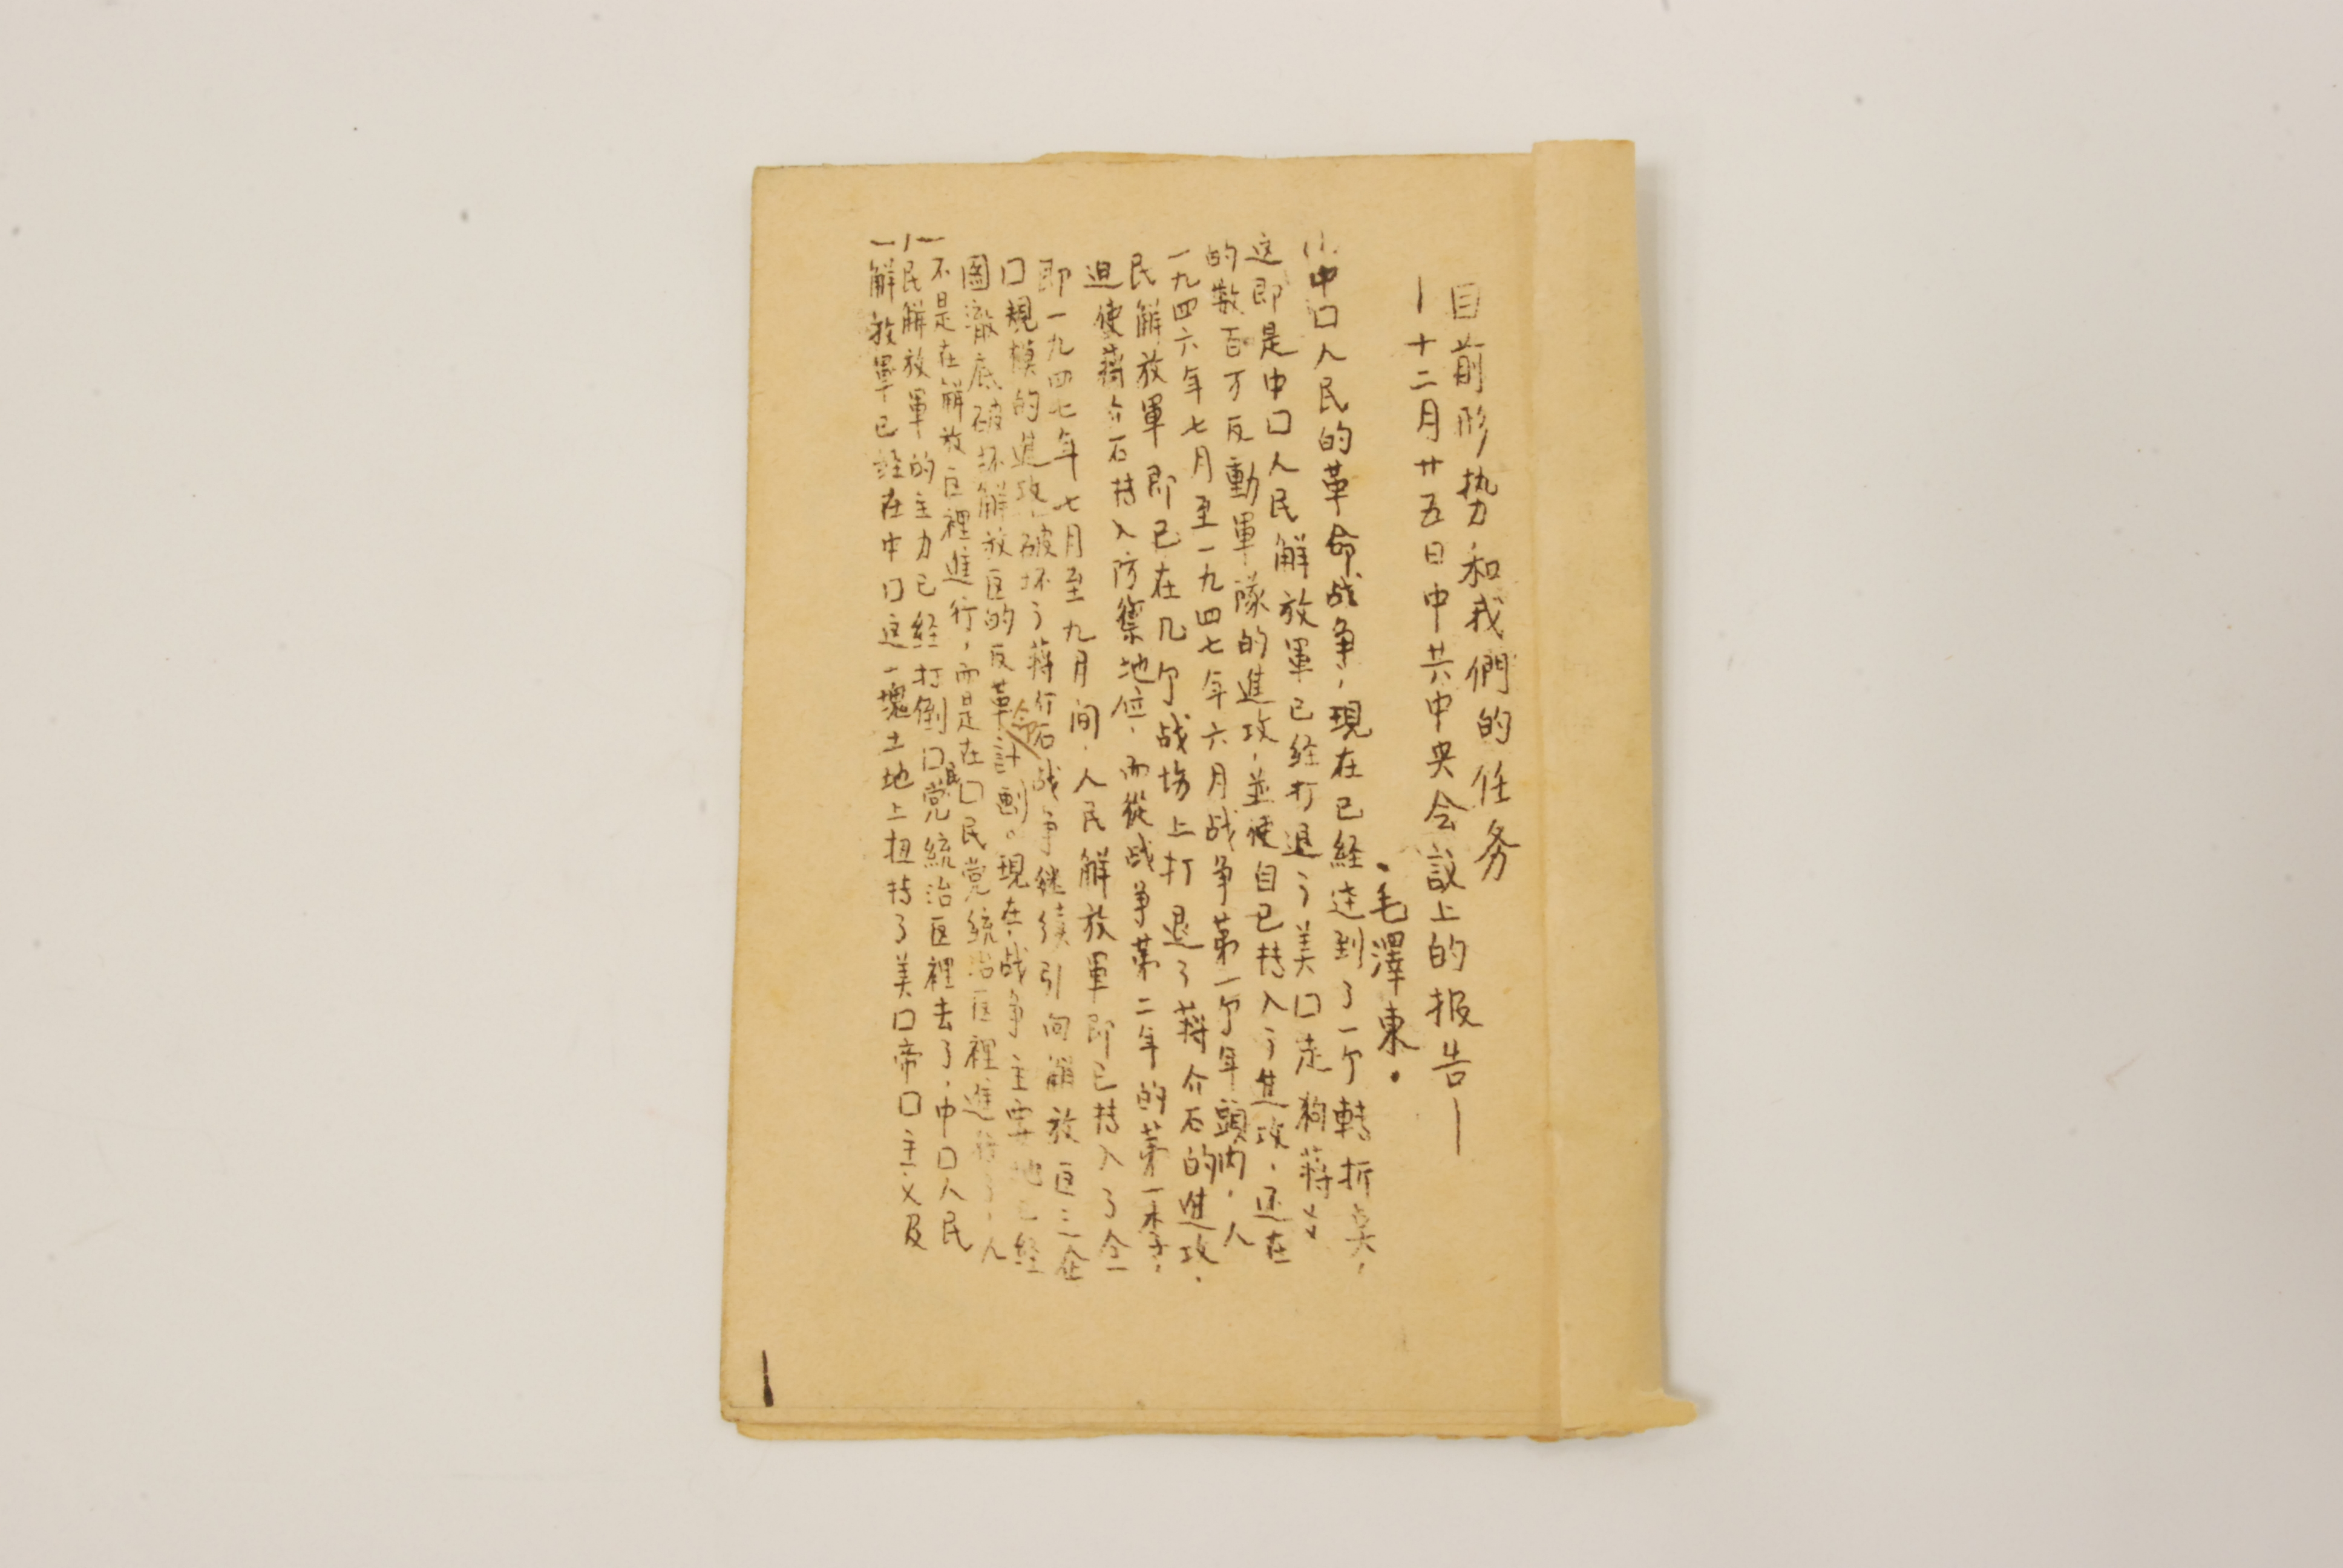 目前形势和我們的任务
—十二月廿五日中共中央会議上的报告—
·毛澤東·
(1)中囗人民的革命战争，現在已経达到了一个轉折点，
这即是中囗人民解放軍已経打退了美囗走狗蒋
的数百万反動軍隊的進攻，並使自己转入了進攻，还在
一九四六年七月至一九四七年六月战争第一个年頭内，人
民解放軍即已在几个战场上打退了蒋介石的進攻，
迫使蒋介石转入防禦地位，而從战争第二年的第一季，
即一九四七年七月至九月间，人民解放軍即已转入了全
囗規模的進攻，破坏了蒋介石战争継续引向解放区之企
圖澈底破坏解放区的反革命計劃。現在，战争主要地已経
不是在解放区裡進行，而是在囗民党統治区裡進行了，人
民解放軍的主力已経打倒囗民党統治区裡去了，中囗人民
解放軍已経在中囗这一塊土地上扭转了美囗帝囗主义及
1